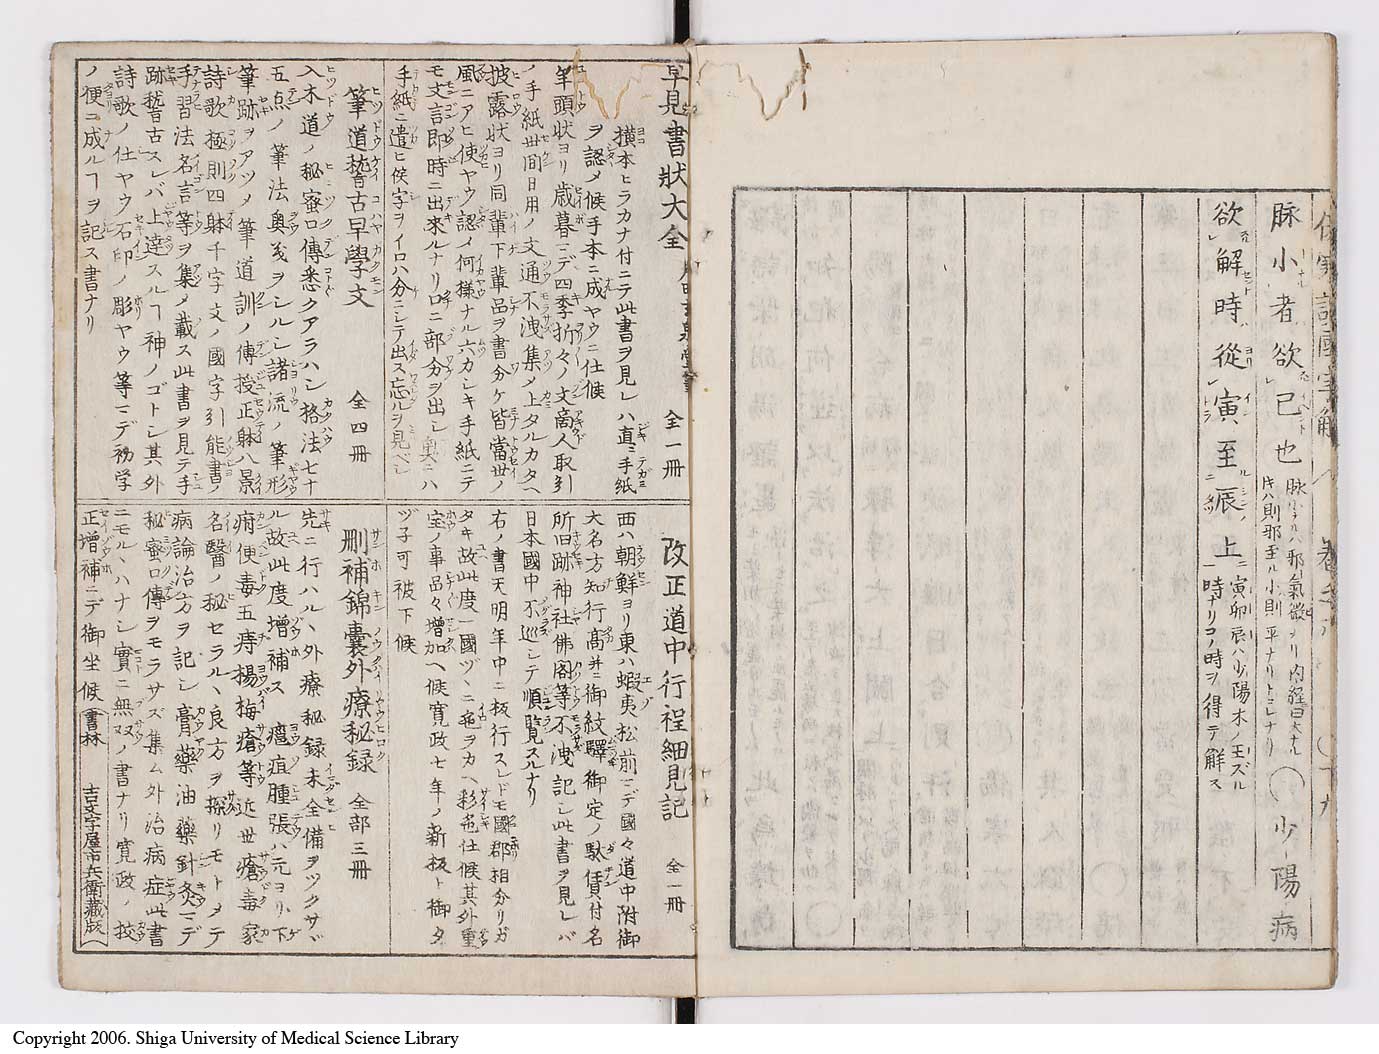 脉小者欲已也
少陽病
欲解時從寅至辰上
寅卯辰ハ少陽木ノ王ズル
時ナリコノ時ヲ得テ解ス
早見書狀大全
全一冊
横本ヒラカナ付ニテ此書ヲ見レハ直ニ手紙
ヲ認メ候手本ニ成ヤウニ仕候
筆頭狀ヨリ歳暮マデ四季折々ノ文商人取引
ノ手紙世間日用ノ文通不洩集メ上タルカタヘ
披露狀ヨリ同輩下輩品ヲ書分ケ皆當世ノ
風ニアヒ使ヤウ認メ何樣ナル六カシキ手紙ニテ
モ文言即時ニ出來ルナリ口ニ部分ヲ出シ奥ニハ
手紙ニ遣ヒ候字ヲイロハ分ニシテ出ス忘ルヲ見ベシ
筆道稽古早學文
全四冊
入木道ノ秘蜜口傳悉クアラハシ格法七十
五点ノ筆法奥義ヲシルシ諸流ノ筆形
筆跡ヲアツメ筆道訓ノ傳授正躰八景
詩歌極則四躰千字文ノ國字引能書ノ
手習法名言等ヲ集メ載ス此書ヲ見テ手
跡稽古スレバ上達スルヿ神ノゴトシ其外
詩歌ノ仕ヤウ石印ノ彫ヤウ等マデ初学
ノ便ニ成ルヿヲ記ス書ナリ
改正道中行程細見記
全一冊
西ハ朝鮮ヨリ東ハ蝦夷松前マデ國々道中附御
大名方知行髙并ニ御紋驛御定ノ駄賃付名
所旧跡神社佛閣等不洩記シ此書ヲ見レバ
日本國中不巡シテ順覧スルナリ
右ノ書天明年中ニ板行スレドモ國郡相分リガ
タキ故此度一國ヅヽニ色ヲカヘ彩色仕候其外重
宝ノ事品々増加ヘ候寛政七年ノ新板ト御タ
ヅ子可被下候
刪補錦囊外療秘録
全部三冊
先ニ行ハルヽ外療秘録未全備ヲツクサヾ
ル故此度増補ス癰疽腫張ハ元ヨリ下
疳便毒五痔楊梅瘡等近世瘡毒家
名醫ノ秘セラルヽ良方ヲ探リモトメテ
病論治方ヲ記シ膏藥油藥針灸マデ
秘蜜口傳ヲモラサズ集ム外治病症此書
ニモルヽハナシ實ニ無双ノ書ナリ寛政ノ校
正増補ニテ御坐候
書林
吉文字屋市兵衛藏版